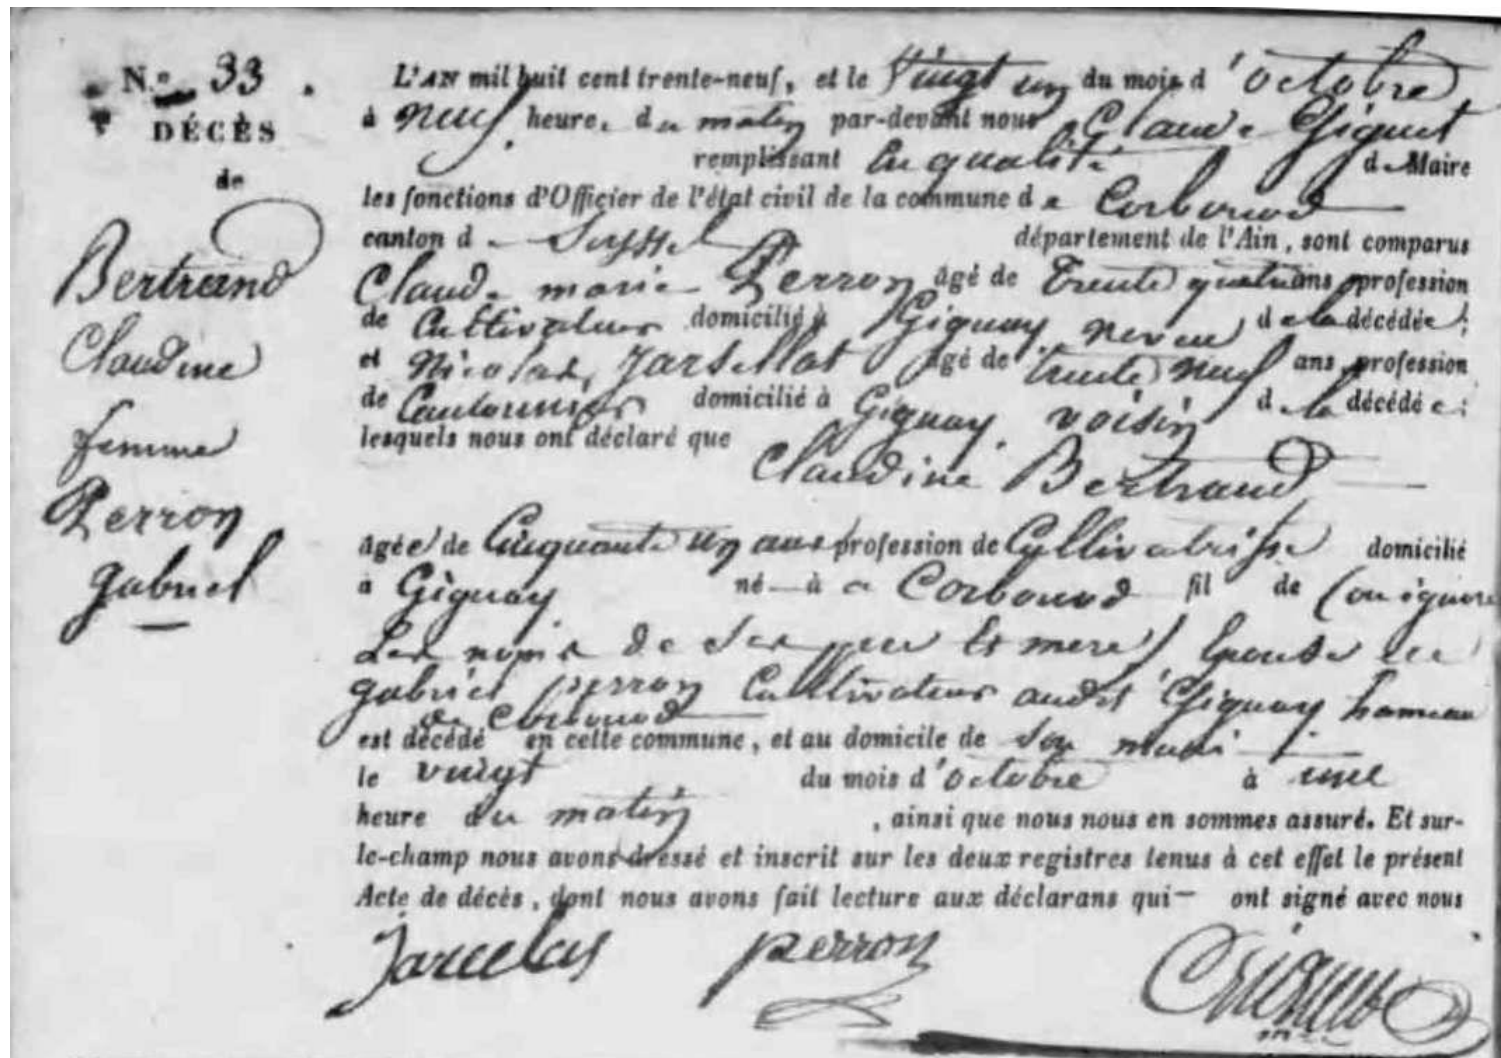 N.º 33.
DÉCÈS
de
Bertrand
Claudine
femme
Perron
gabriel
L'AN mil huit cent trente-neuf, et le Vingt un du mois d'octobre
à neuf heure, du matin par-devant nous Claude Giguet
remplissant en qualité de Maire
les fonctions d'Officier de l'état civil de la commune de Corbonod
canton de Seyssel département de l'Ain, sont comparus
Claude marie Perron âgé de trente quatre ans, profession
de Cultivateur domicilié à Gignay neveu de la décédée;
et Nicolas, âgé de trente neuf ans, profession
de Cantonnier domicilié à Gignay voisin de la décédée;
lesquels nous ont déclaré que
Claudine Bertrand
âgée de Cinquante un ans profession de Cultivatrisse domicilié
à Gignay né à Corbonod fil de (on ignore
Les noms de ses pere et mere) Epouse de
gabriel perron Cultivateur audit Gignay hameau
de Corbonod
est décédé en cette commune, et au domicile de son mari
le vingt du mois d'octobre à une
heure du matin, ainsi que nous nous en sommes assuré. Et sur-
le-champ nous avons dressé et inscrit sur les deux registres tenus à cet effet le présent
Acte de décès, dont nous avons fait lecture aux déclarans qui ont signé avec nous
perron